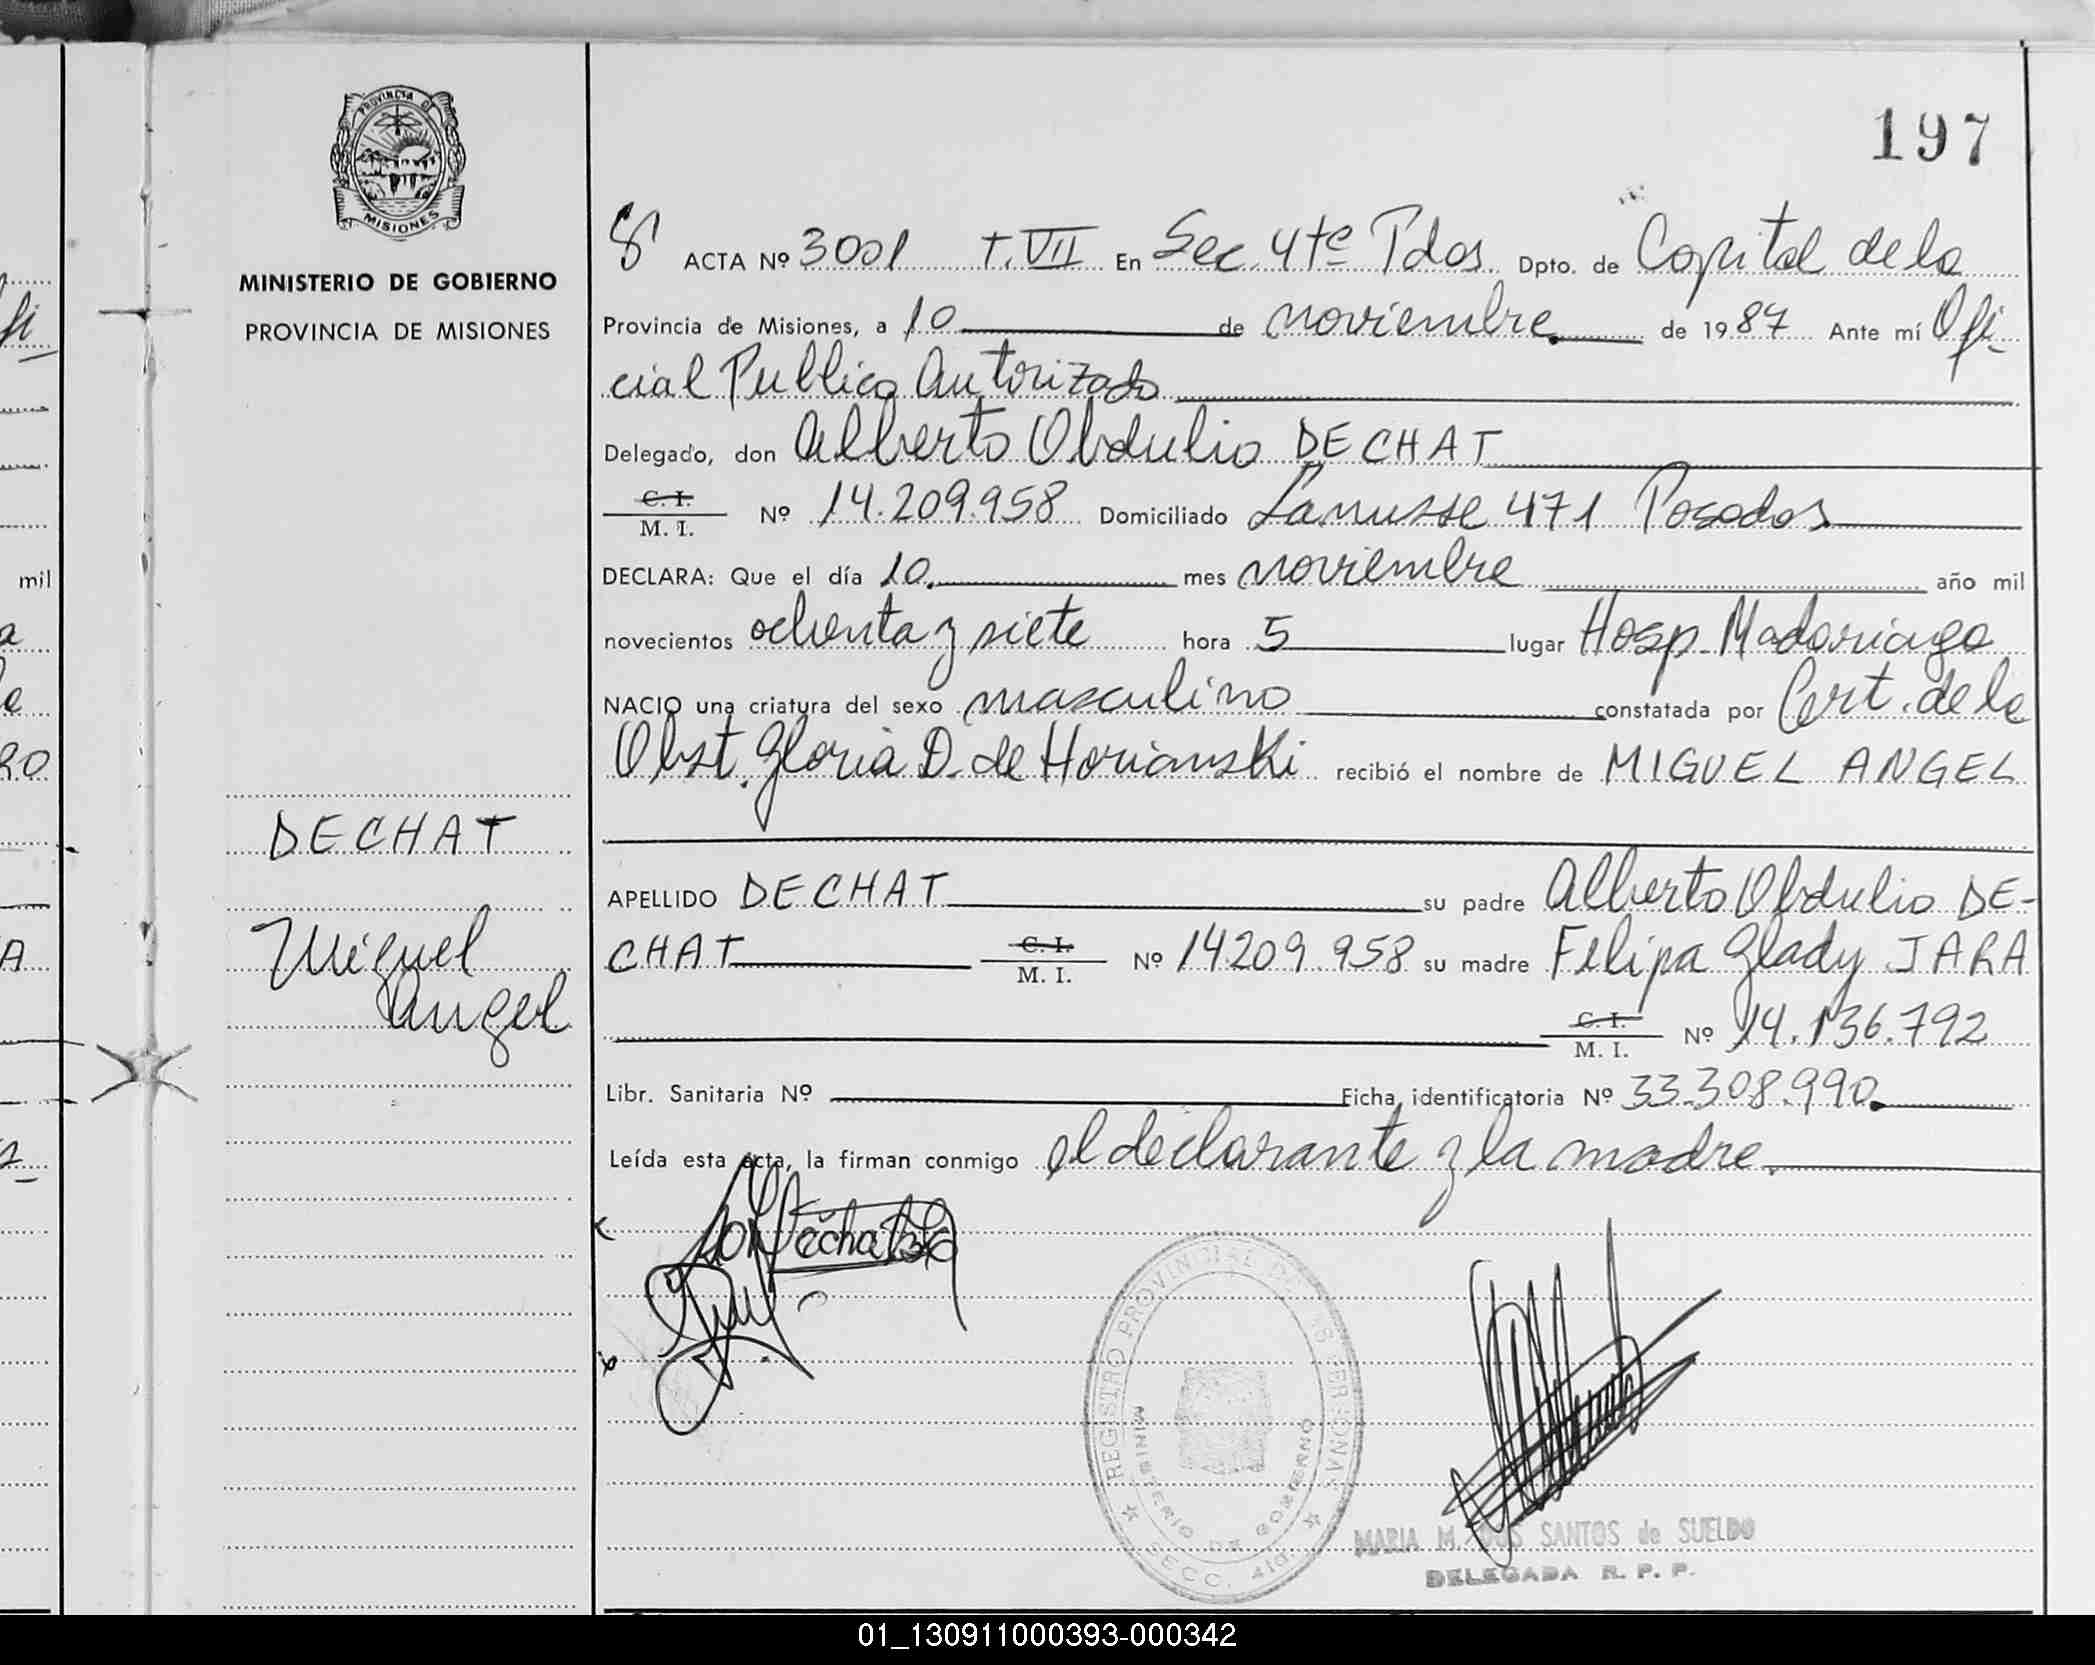 PROVINCIA DE
MISIONES
MINISTERIO DE GOBIERNO
PROVINCIA DE MISIONES
DECHAT
Miguel
Angel
197
8 ACTA Nº 3001 T. VII En Sec. 4ta Pdas. Dpto. de Capital de la
Provincia de Misiones, a 10 de noviembre de 1987 Ante mí Ofi-
cial Publico Autorizado
Delegado, don Alberto Obdulio DECHAT
C. I.
M. I. Nº 14.209.958 Domiciliado Lanusse 471 Posadas
DECLARA: Que el día 10 mes noviembre año mil
novecientos ochenta y siete hora 5 lugar Hosp. Madariaga
NACIO una criatura del sexo masculino constatada por Cert. de la
Obst. Gloria D. de Horianski recibió el nombre de MIGUEL ANGEL
APELLIDO DECHAT su padre Alberto Obdulio DE-
CHAT C. I. M. I. Nº 14209.958 su madre Felipa Glady JARA
C. I. M. I. Nº 14.136.792
Libr. Sanitaria Nº Ficha identificatoria Nº 33.308.990
Leída esta acta, la firman conmigo el declarante y la madre.
REGISTRO PROVINCIAL DE LAS PERSONAS
MINISTERIO DE GOBIERNO
SECC. 4ta.
MARIA M. DOS SANTOS de SUELDO
DELEGADA R. P. P.
mil
01_130911000393-000342